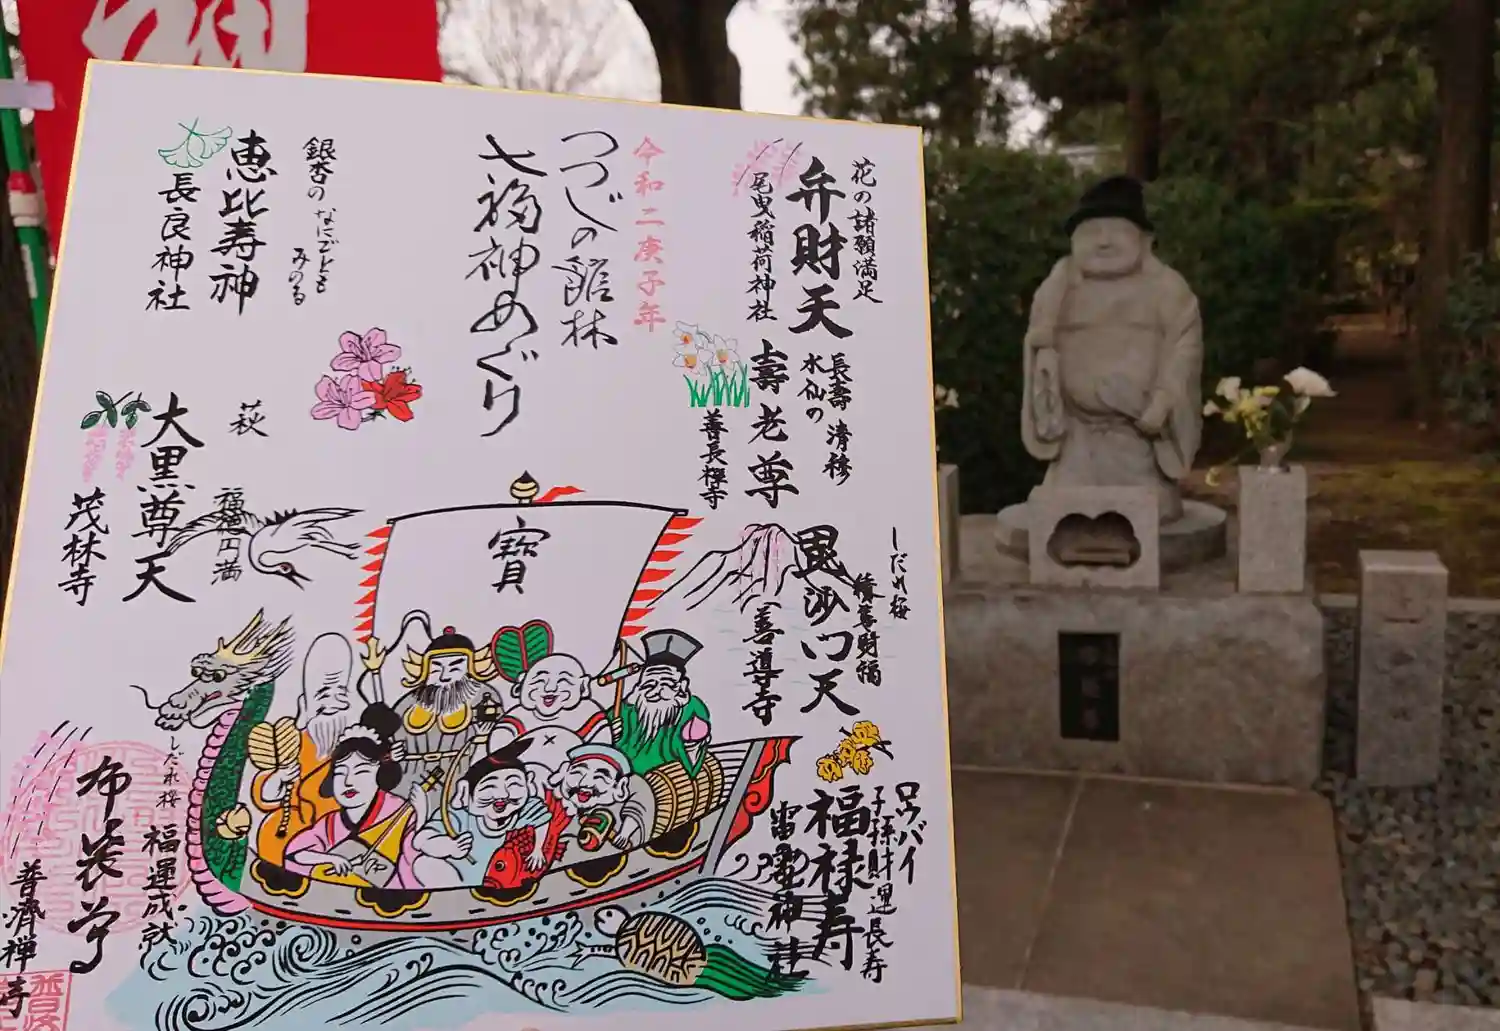 花の諸願満足
弁財天
尾曳稲荷神社
長壽
清穆
水仙の
壽老尊
善長櫻寺
しだれ桜
積善財福
毘沙门天
善導寺
ロウバイ
子孫財運長寿
福禄寿
雷電神社
令和二庚子年
つつじの館林
七福神めぐり
銀杏の
なにごとも
みのる
恵比寿神
長良神社
萩
福徳円満
大黒尊天
茂林寺
寶
しだれ桜
福運成就
布袋尊
普濟禅寺